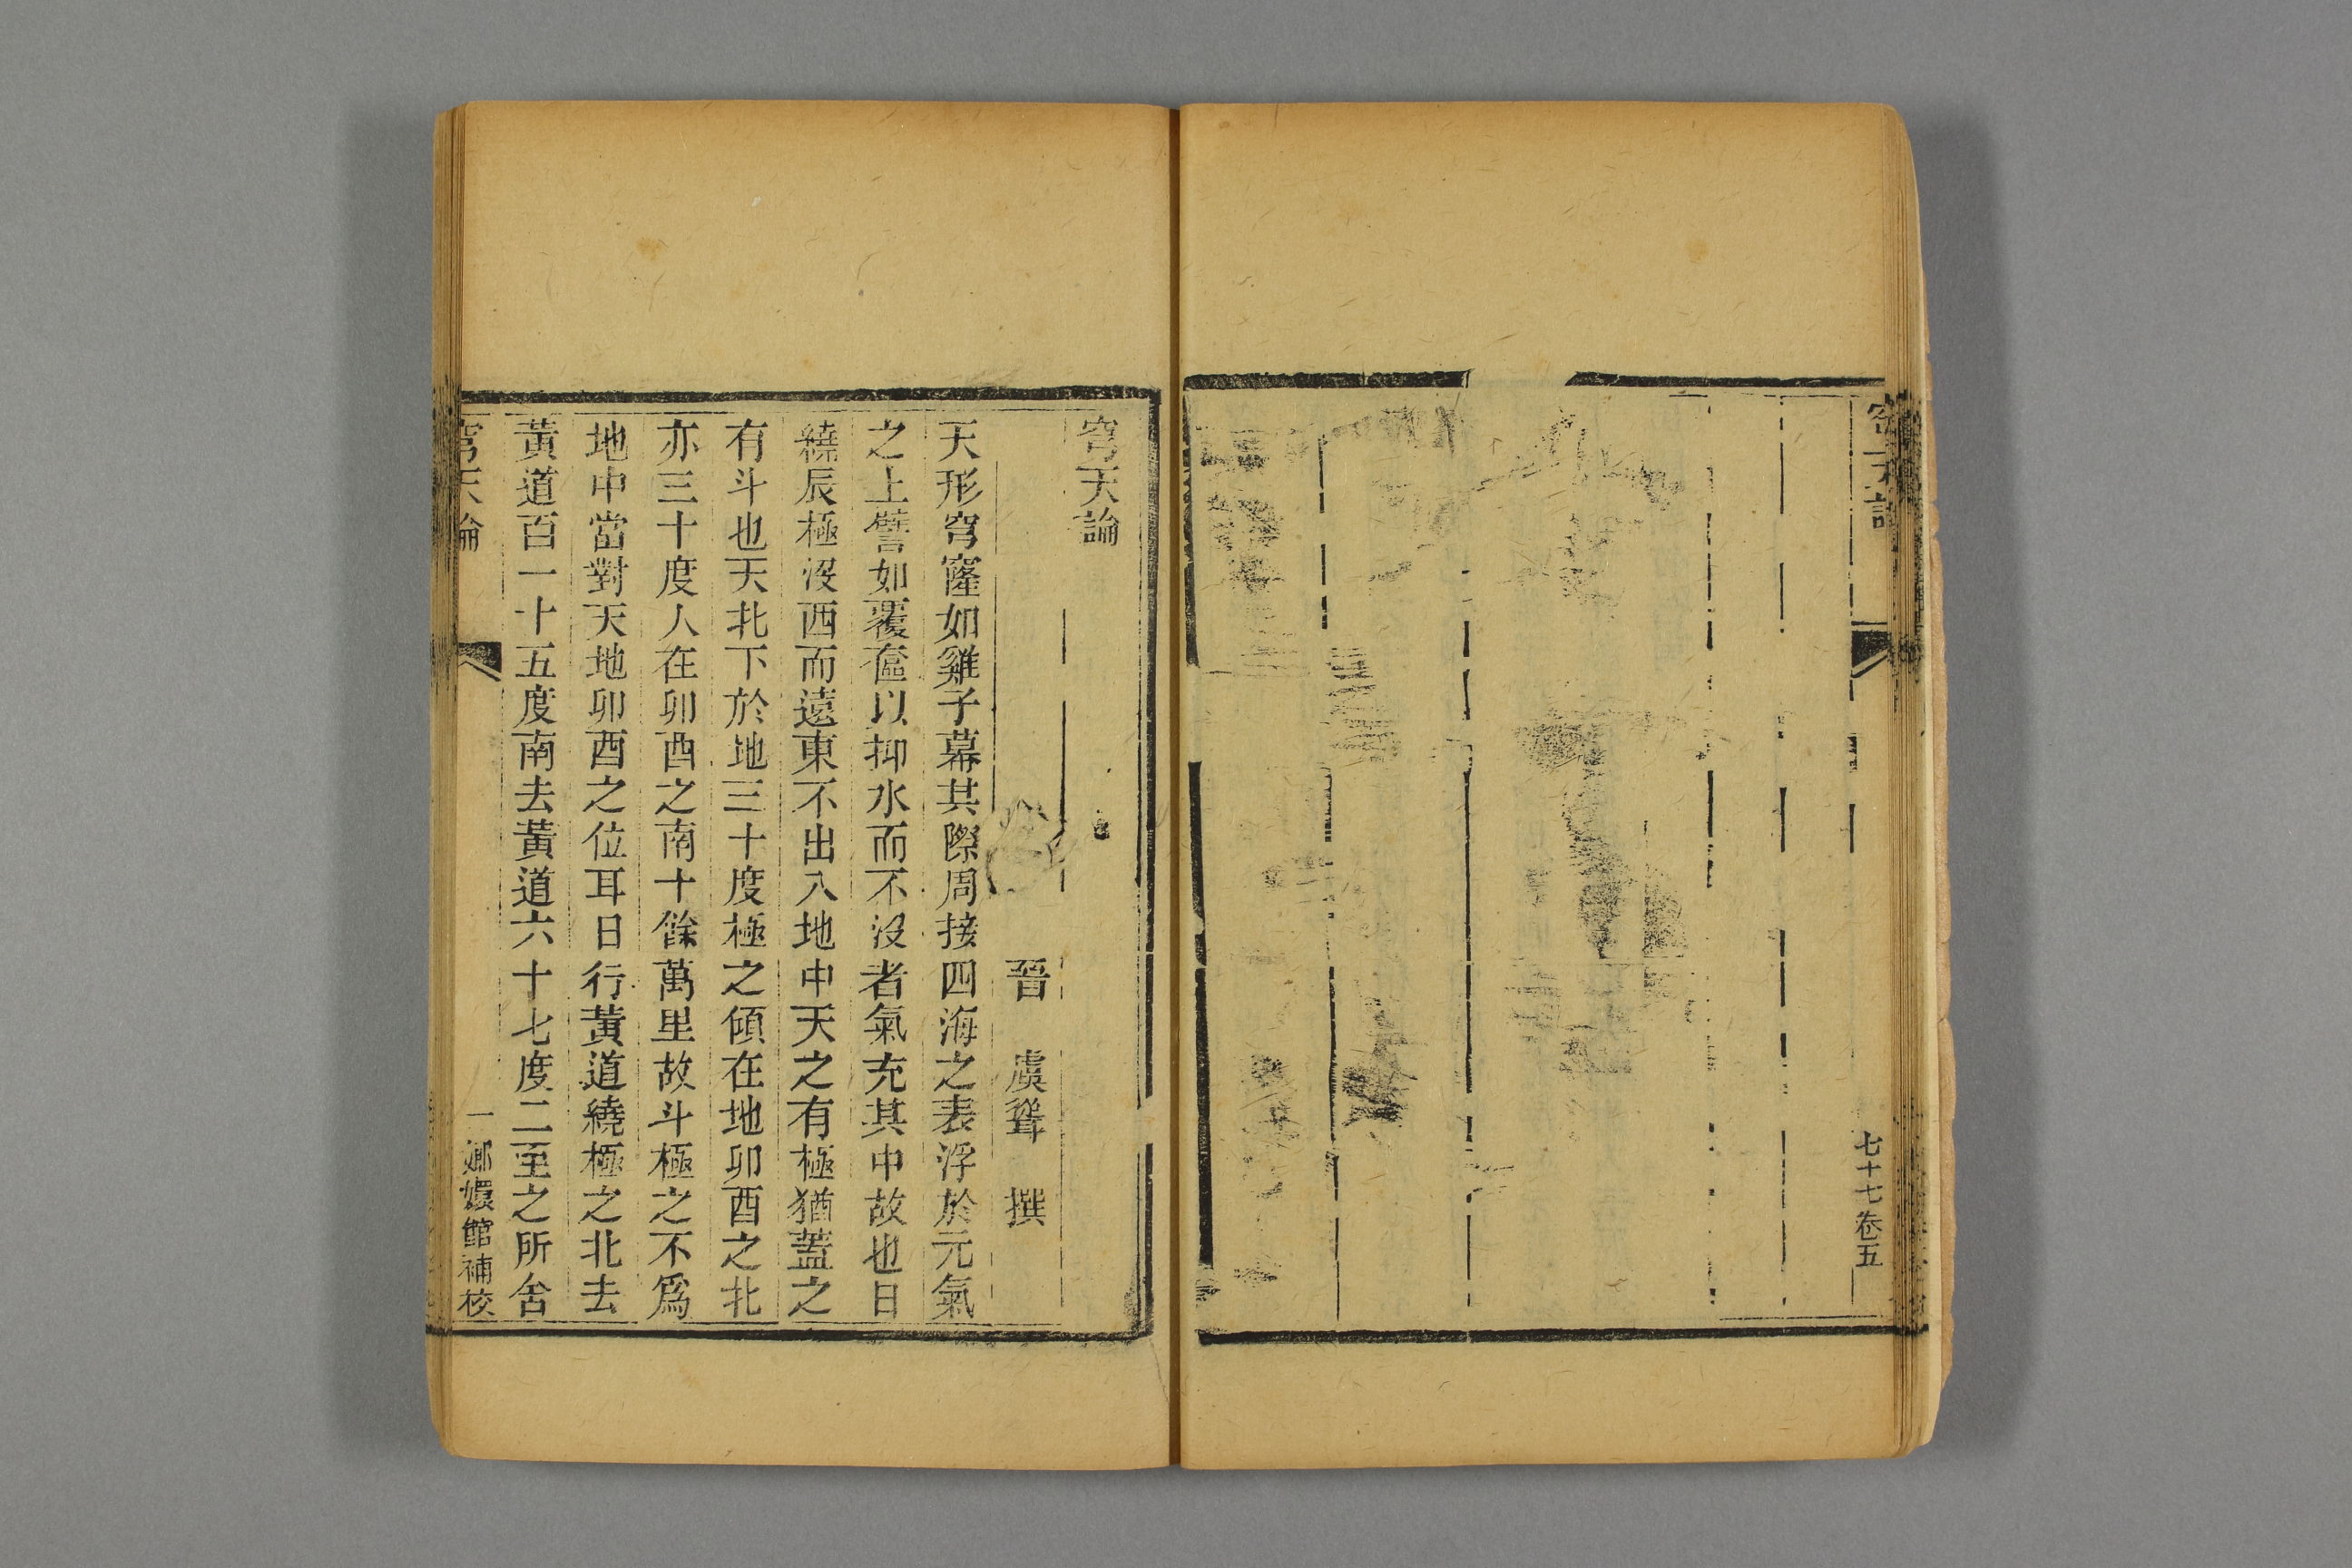 七十七卷五
穹天論
晉 虞聳 撰
天形穹窿如雞子幕其際周接四海之表浮於元氣
之上譬如覆奩以抑水而不沒者氣充其中故也日
繞辰極沒西而還東不出入地中天之有極猶蓋之
有斗也天北下於地三十度極之傾在地卯酉之北
亦三十度人在卯酉之南十餘萬里故斗極之不爲
地中當對天地卯酉之位耳日行黃道繞極之北去
黃道百一十五度南去黃道六十七度二至之所舍
穹天論 一 嫏嬛館補校